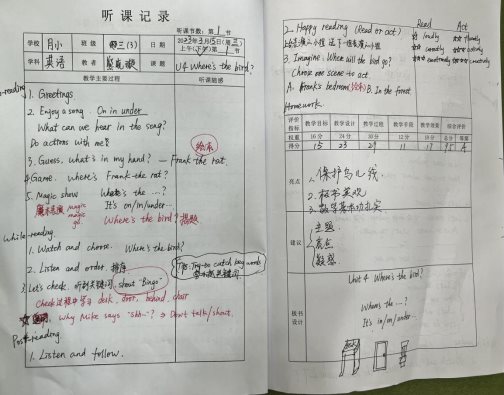 听课记录
听课节数：第 1 节
学校 月小 班级 三(3) 日期 2023年3月15日(第三)
上午(下午)第 1
学科 英语 教者 课题 U4 Where's the bird?
教学主要过程 听课随感
-reading
1. Greetings
2. Enjoy a song. On in under
What can we hear in the song?
Do actions with me.
绘本
3. Guess. what's in my hand? — Frank the rat.
4. Game. where's Frank the rat?
5. Magic show Where's the ...?
魔术表演 magic It's on/in/under...
magic
go. Where's the bird? 揭题
While-reading
1. Watch and choose. Where's the bird?
2. Listen and order. 排序
Tip: Try to catch key words
3. Let's check. 听到关键词, shout "Bingo"
Check过程中学习 desk, door, behind, chair
why Mike says "shh~"? → Don't talk/shout.
Post-reading.
1. Listen and follow.
2. Happy reading (Read or act) Read Act
loudly fluently
correctly actively
emotionally creatively
3. Imagine: Where will the bird go?
Choose one scene to act.
A. Frank's bedroom (绘本) B. In the forest
Homework.
评价指标 教学目标 教学设计 教学过程 教学手段 教学效果 综合评价
权重 16分 24分 30分 12分 18分 总分 等第
得分 15 23 29 11 17 95 A
亮点
1. 保护鸟儿
2. 板书美观
3. 教学基本功扎实
建议
主题
亮点
板书设计
Unit 4 Where's the bird?
Where's the ...?
It's in/on/under...